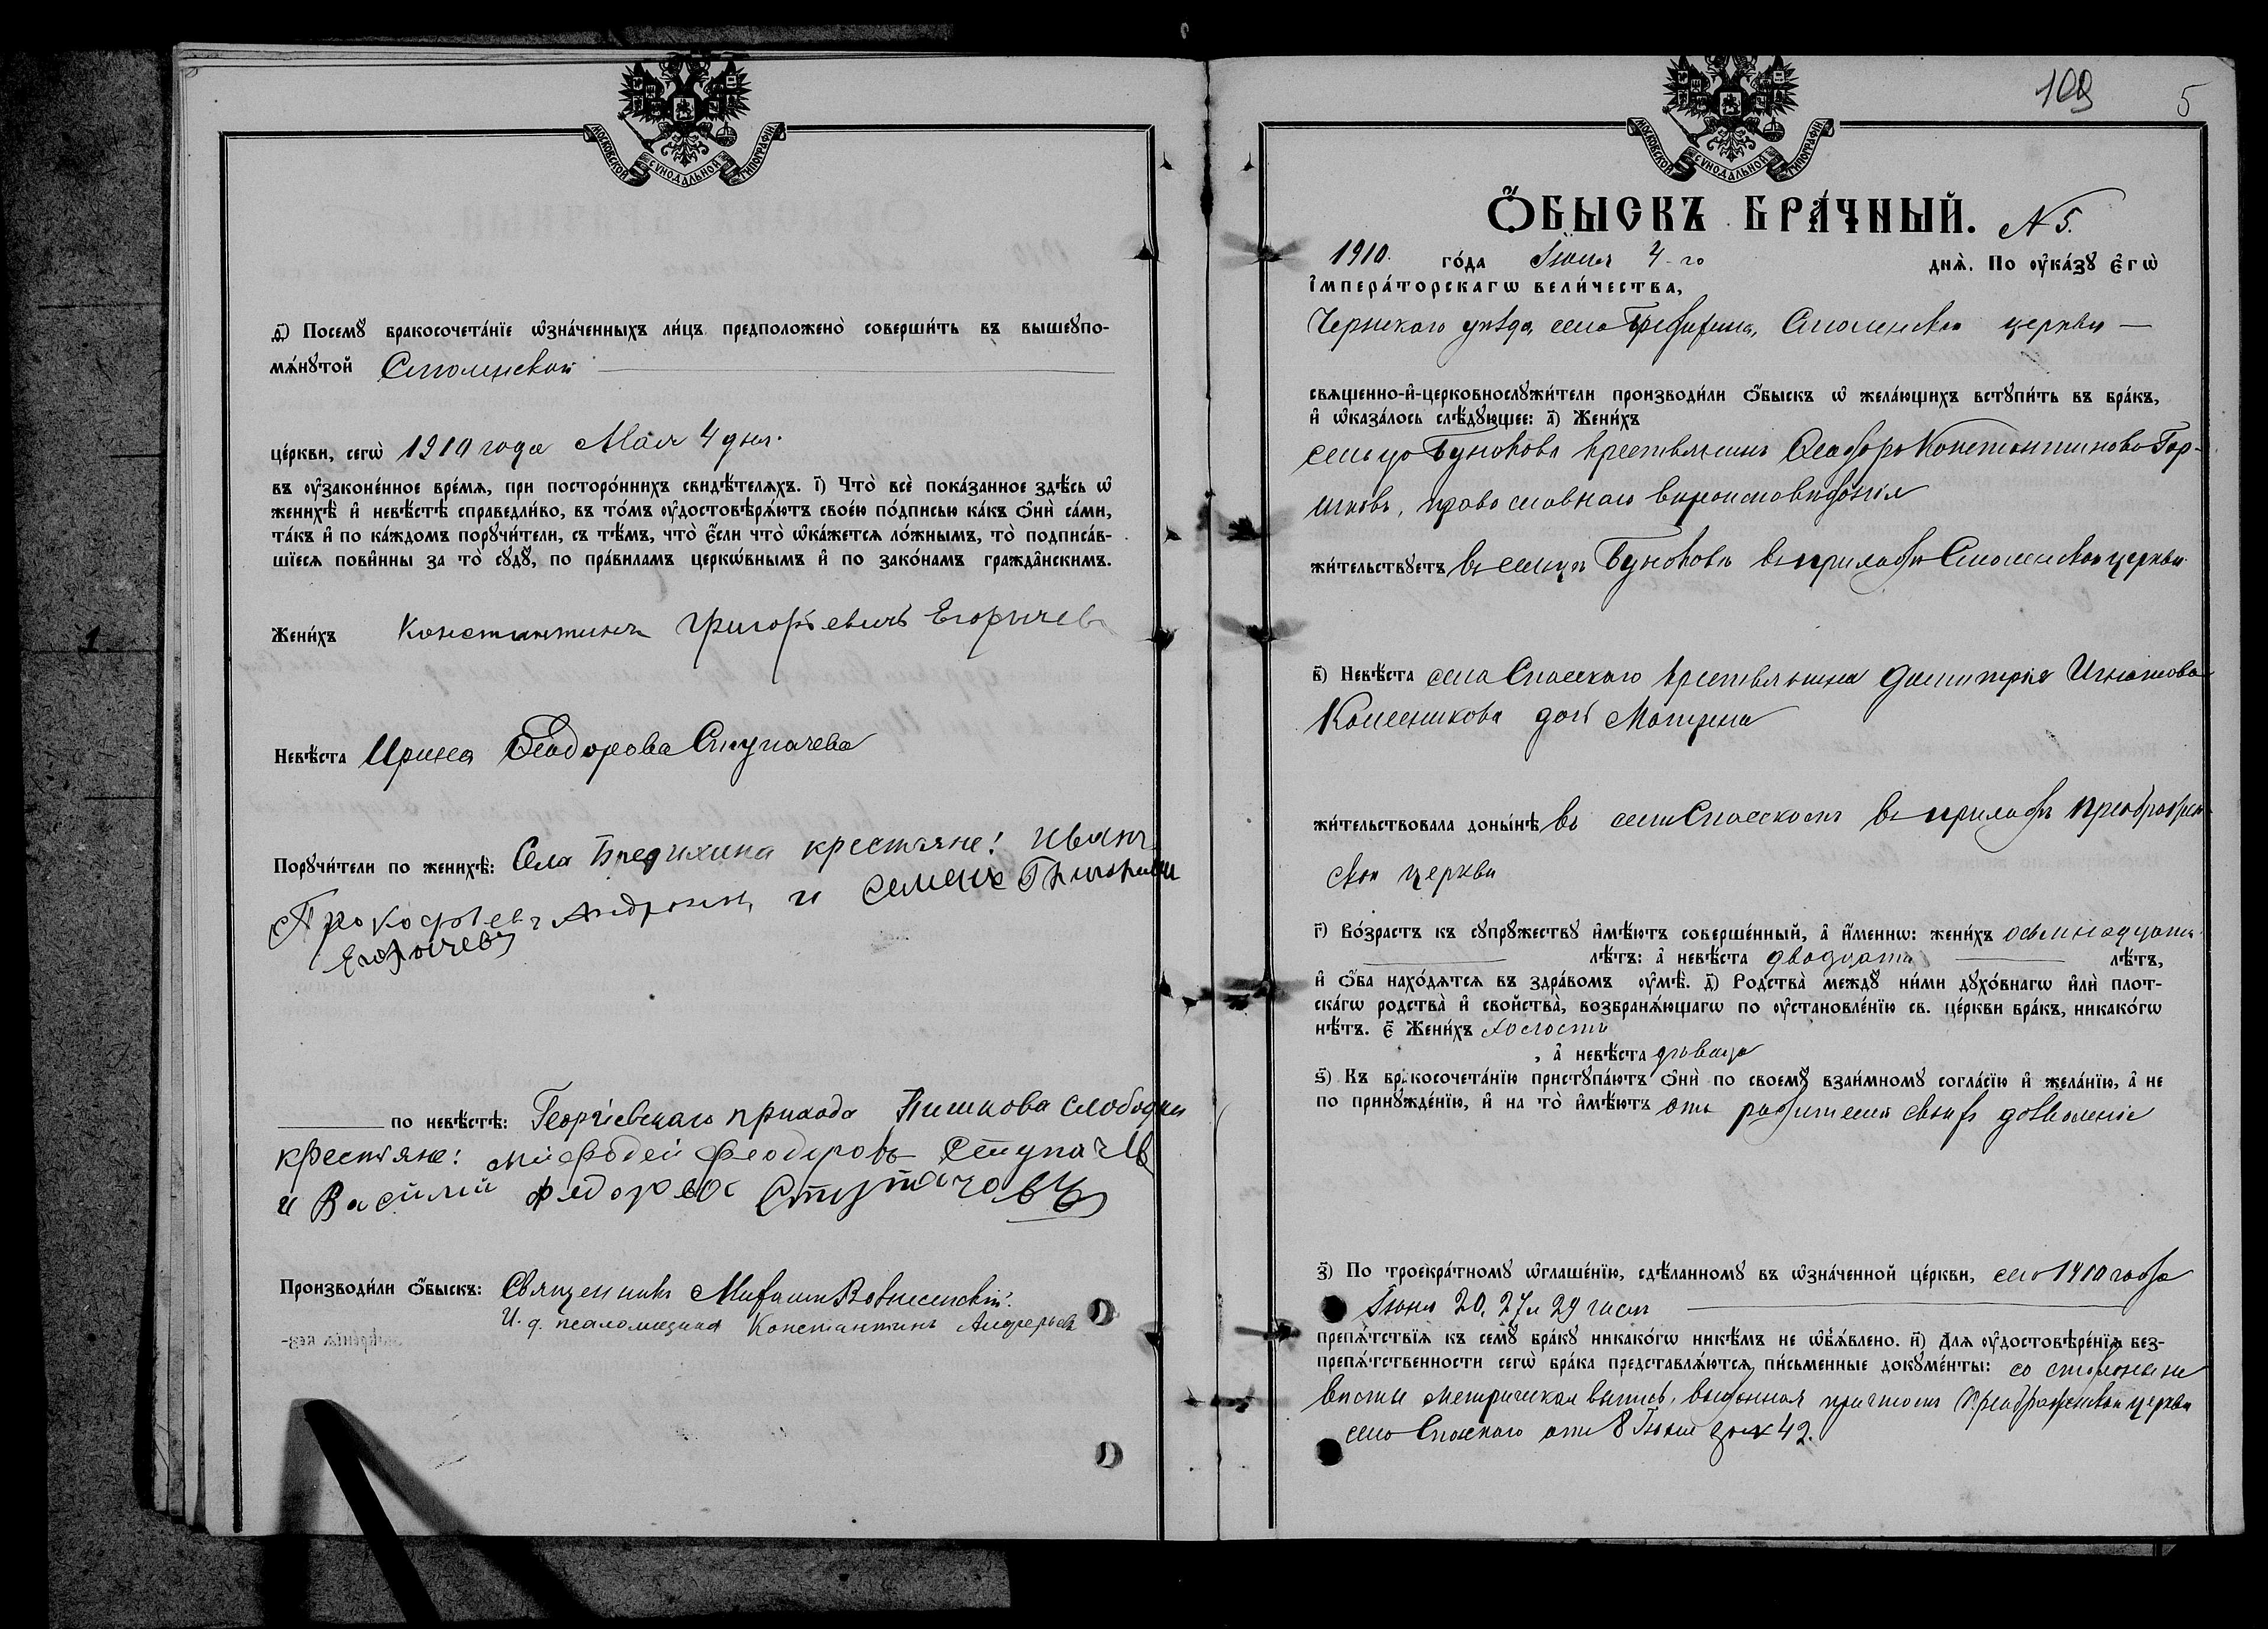 МОСКОВСКОЙ СѴНОДАЛЬНОЙ ТИПОГРАФІИ
ѳ҃) Посемꙋ бракосочета́нїе ѡ҆зна́ченныхъ ли́цъ предположено̀ соверши́ть въ вышеꙋпо-
мѧ́нꙋтой Смоленской
це́ркви, сегѡ̀ 1910 года Мая 4 дня.
въ ᲂу҆законе́нное вре́мѧ, при посторо́ннихъ свидѣ́телѧхъ. і҃) Что̀ всѐ пока́занное здѣ́сь ѡ҆
женихѣ̀ и҆ невѣ́стѣ справедли́во, въ то́мъ ᲂу҆достовѣрѧ́ютъ свое́ю по́дписью ка́къ ѻ҆нѝ са́ми,
та́къ и҆ по ка́ждомъ порꙋчи́тели, съ тѣ́мъ, что̀ є҆́сли что̀ ѡ҆ка́жетсѧ ло́жнымъ, то̀ подписа́в-
шїесѧ пови́нны за то̀ сꙋдꙋ̀, по пра́виламъ церкѡ́внымъ и҆ по зако́намъ гражда̂нскимъ.
Жени́хъ Константинъ Григорьевичъ Егорычевъ
Невѣ́ста Ирина Ѳеодорова Ступачева
Порꙋчи́тели по женихѣ̀: Села Бредихина крестьяне: Иванъ
Прокофьевъ Андронин, и Семенъ
Егорычевъ
по невѣ́стѣ: Георгіевскаго прихода Пишкова слободки
крестьяне: Мифодей Феодоровъ Ступачев
и Василий Федоровъ Ступачовъ
Производи́ли ѻ҆́быскъ: Священникъ Михаилъ Вознесенскій.
И. д. псаломщика Константинъ
МОСКОВСКОЙ СѴНОДАЛЬНОЙ ТИПОГРАФІИ
109 5
Ѻ҆́БЫСКЪ БРА́ЧНЫЙ. № 5.
1910. го́да Іюля 4-го днѧ̀. По ᲂу҆ка́зꙋ є҆гѡ̀
і҆мпера́торскагѡ вели́чества,
Чернскаго уѣзда, села Бредихина, Смоленской церкви
свѧщенно-и҆-церковнослꙋжи́тели производи́ли ѻ҆́быскъ ѡ҆ жела́ющихъ встꙋпи́ть въ бра́къ,
и҆ ѡ҆каза́лось слѣ́дꙋющее: а҃) Жени́хъ
сельца Бунокова крестьянинъ Ѳеодоръ Константиновъ Гор-
православнаго вѣроисповѣданія
жи́тельствꙋетъ въ сельцѣ Буноковѣ въ приходѣ Смоленской церкви
в҃) Невѣ́ста села Спасскаго крестьянина Димитрія Игнатова
Колесникова дочь Матрена
жи́тельствовала доны́нѣ въ селѣ Спасскомъ въ приходѣ Преображен-
ской церкви
г҃) Во́зрастъ къ сꙋпрꙋ́жествꙋ и҆мѣ́ютъ соверше́нный, а҆ и҆́меннѡ: жени́хъ осьмнадцати
лѣ́тъ: а҆ невѣ́ста двадцати лѣ́тъ,
и҆ ѻ҆́ба нахо́дѧтсѧ въ здра́вомъ ᲂу҆мѣ̀. д҃) Родства̀ междꙋ̀ ни́ми дꙋхо́внагѡ и҆лѝ плот-
ска́гѡ родства̀ и҆ свойства̀, возбранѧ́ющагѡ по ᲂу҆становле́нїю св. це́ркви бра́къ, никако́гѡ
нѣ́тъ. є҃ Жени́хъ холостъ
, а҆ невѣ́ста дѣвица
ѕ҃) Къ бракосочета́нїю приступа́ютъ ѻ҆нѝ по своемꙋ̀ взаи́мномꙋ согла́сїю и҆ жела́нїю, а҆ не
по принꙋжде́нїю, и҆ на то̀ и҆мѣ́ютъ отъ родителей своихъ дозволеніе
з҃) По троекра́тномꙋ ѡ҆глаше́нїю, сдѣ́ланномꙋ въ ѡ҆зна́ченной це́ркви, сего 1910 года
Іюня 20, 27 и 29 чиселъ
препѧ́тствїѧ къ семꙋ̀ бра́кꙋ никако́гѡ никѣ́мъ не ѡ҆б̾ѧ́влено. и҃) Длѧ ᲂу҆достовѣре́нїѧ без-
препѧ́тственности сегѡ̀ бра́ка представлѧ́ютсѧ пи́сьменные докꙋме́нты: со стороны не
вѣсты метрическая выпись, выданная причтомъ Преображенской церкви
села Спасскаго отъ 8 Іюня за № 42.